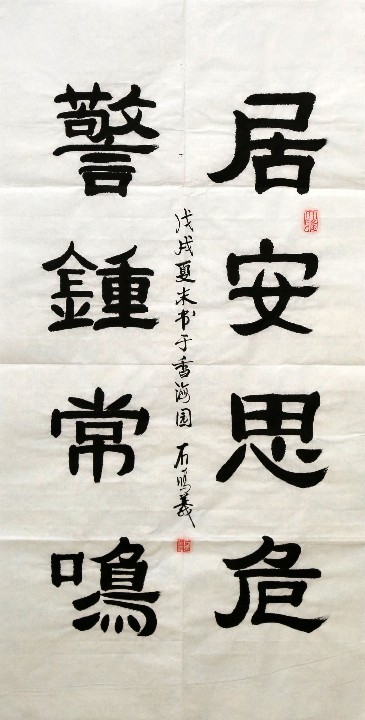 居安思危
警鍾常鳴
戊戌夏末书于香海园 石鸣義